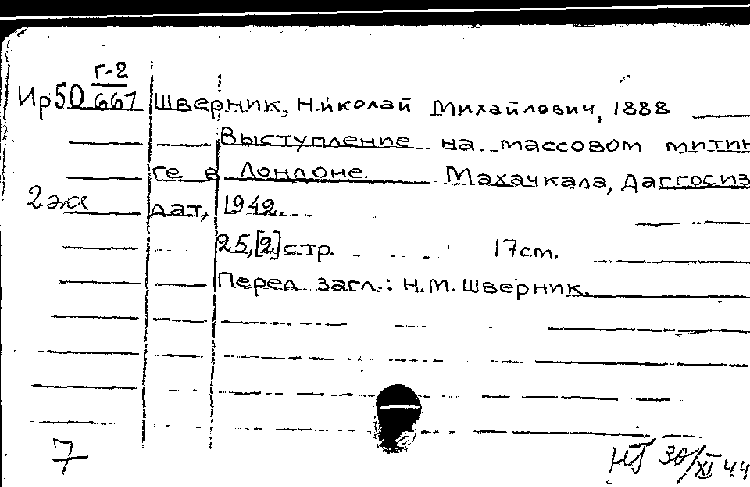 Г-2
Ир50 661 Шверник, Николай Михайлович, 1888
Выступление на массовом митин
ге в Лондоне. Махачкала, Даггосиз
2 экз дат, 1942.
25,[2] стр. 17 cm.
Перед загл.: Н.М. Шверник.
7
30/XI 44